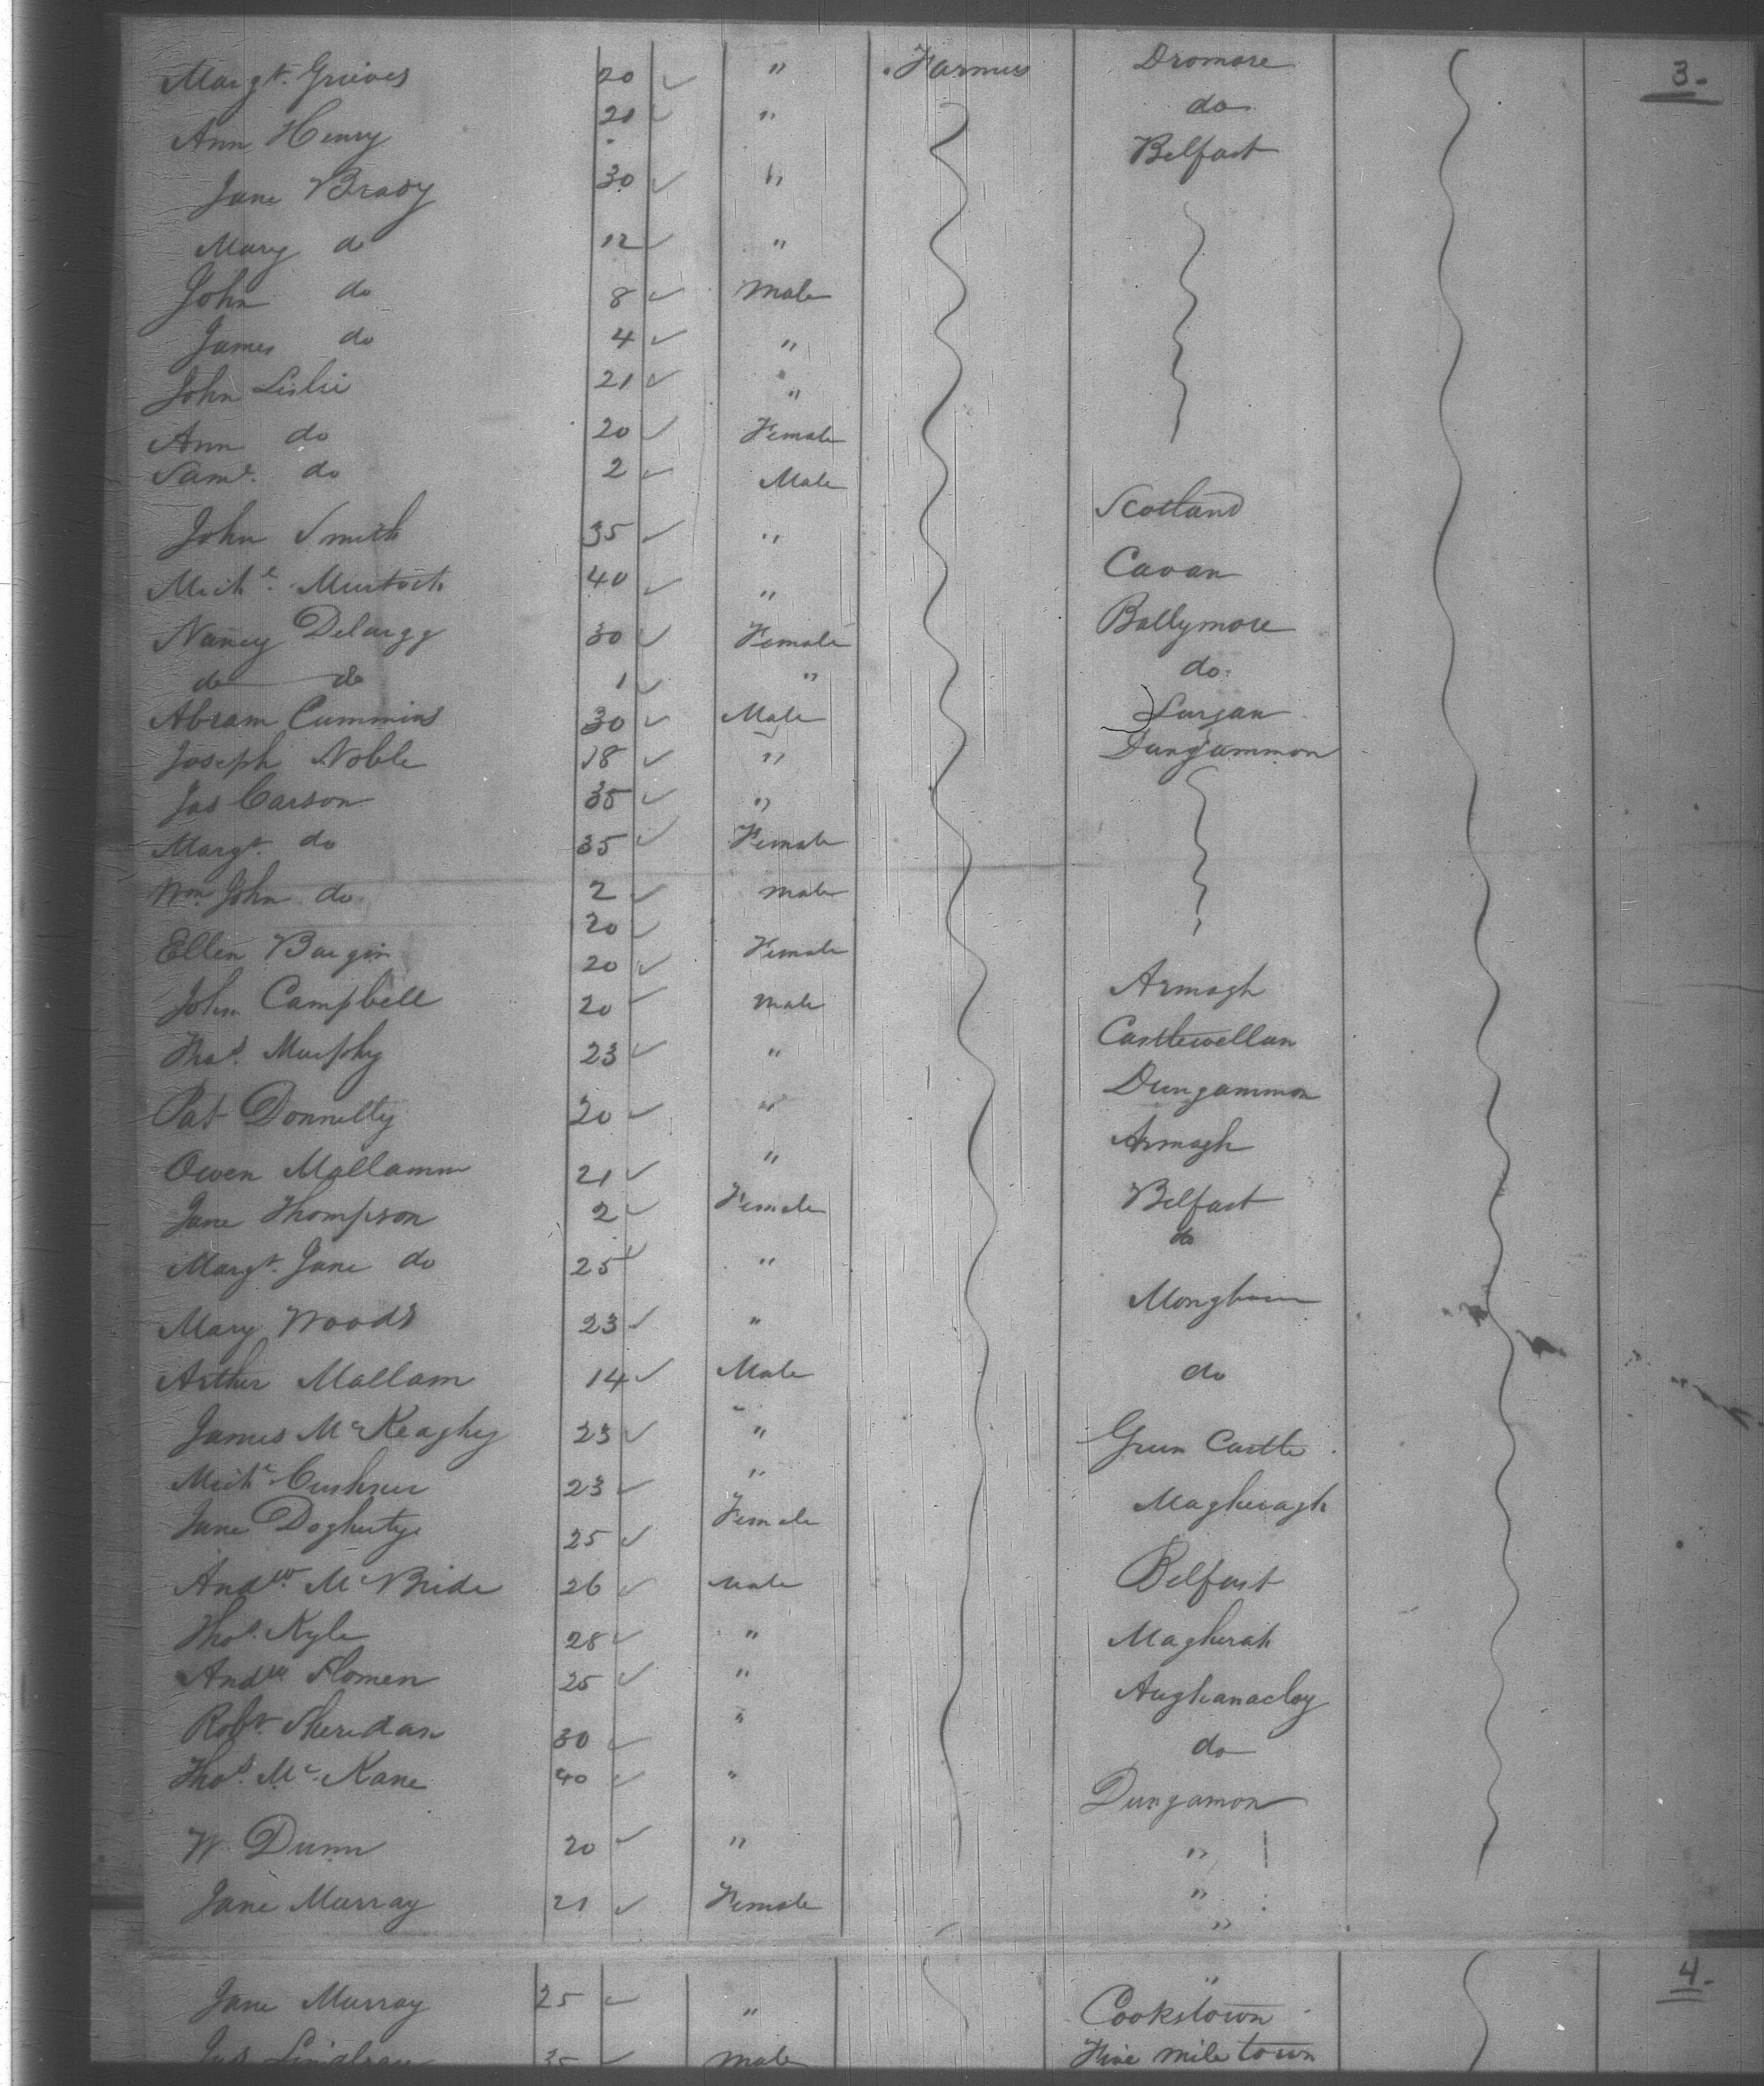 Margt. Grieves 20 " Farmers Dromore 3-
Ann Henry 21 " do
Jane Brady 30 " Belfast
Mary do 12 "
John do 8 Male
James do 4 "
John Leslie 21 "
Ann do 20 Female
Saml. do 2 Male
John Smith 35 " Scotland
Michl. Murtoch 40 " Cavan
Nancy Delargy 30 Female Ballymore
do do 1 " do.
Abram Cummins 30 Male Lurgan
Joseph Noble 18 " Dungammon
Jas Carson 35 "
Margt. do 35 Female
Wm John do 2 Male
20
Ellen Bargin 20 Female
John Campbell 20 Male Armagh
Thos. Murphy 23 " Castlewellan
Pat Donnelly 20 " Dungammon
Owen Mallamm 21 " Armagh
Jane Thompson 2 Female Belfast
Margt. Jane do 25 " do
Mary Woods 23 " Monghan
Arther Mallam 14 Male do
James McKeaghy 23 " Green Castle
Michl. 23 "
Jane Doghertye 25 Female Magheragh
Andw. McBride 26 Male Belfast
Thos. Kyle 28 " Magherah
Andw. Slomen 25 " Aughanacloy
Robt. Sheridan 30 " do
Thos. Mc. Kane 40 " Dungamon
W. Dunn 20 " "
Jane Murray 21 Female "
"
Jane Murray 25 " " 4-
Cookstown
Jas Lindsay 35 Male Five mile town